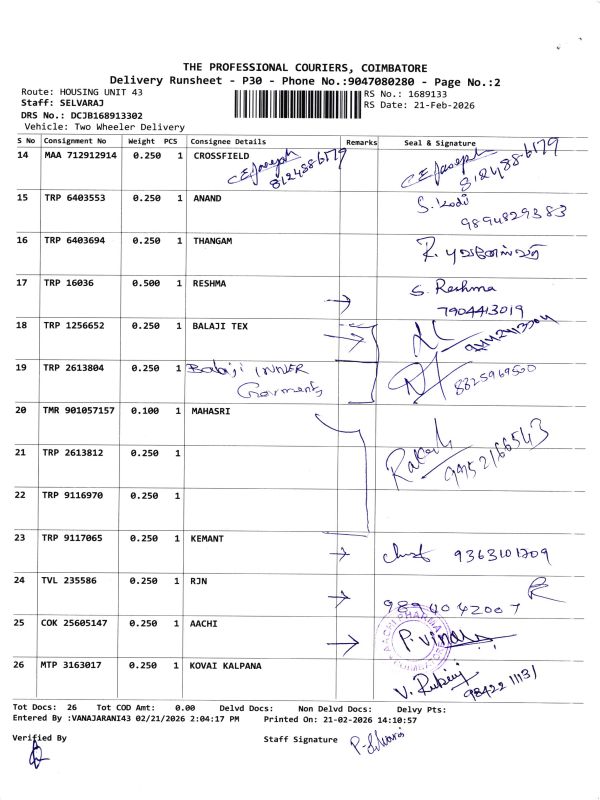 THE PROFESSIONAL COURIERS, COIMBATORE
Delivery Runsheet - P30 - Phone No.:9047080280 - Page No.:2
Route: HOUSING UNIT 43
RS No.: 1689133
Staff: SELVARAJ
RS Date: 21-Feb-2026
DRS No.: DCJB168913302
Vehicle: Two Wheeler Delivery
S No Consignment No Weight PCS Consignee Details Remarks Seal & Signature
14 MAA 712912914 0.250 1 CROSSFIELD
C.E. Joseph C.E. Joseph
8124886179 8124886179
15 TRP 6403553 0.250 1 ANAND S. Kodi
9894829383
16 TRP 6403694 0.250 1 THANGAM R. புவனேஸ்வரி
17 TRP 16036 0.500 1 RESHMA S. Reshma
7904413019
18 TRP 1256652 0.250 1 BALAJI TEX
19 TRP 2613804 0.250 1 Balaji INNER
Garments 8825969500
20 TMR 901057157 0.100 1 MAHASRI
21 TRP 2613812 0.250 1 Rakesh 9952166543
22 TRP 9116970 0.250 1
23 TRP 9117065 0.250 1 KEMANT 9363101709
24 TVL 235586 0.250 1 RJN
9894042007
25 COK 25605147 0.250 1 AACHI AACHI PHARMA COIMBATORE
P. Vinay
26 MTP 3163017 0.250 1 KOVAI KALPANA
V. 9842211131
Tot Docs: 26 Tot COD Amt: 0.00 Delvd Docs: Non Delvd Docs: Delvy Pts:
Entered By :VANAJARANI43 02/21/2026 2:04:17 PM Printed On: 21-02-2026 14:10:57
Verified By Staff Signature P. Selvaraj